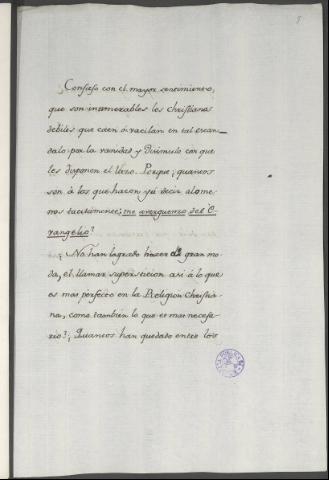 5
Confieso con el mayor sentimiento,
que son innumerables los christianos
debiles que caen ó vacilan en tal escan-
dalo por la vanidad y disimulo con que
les disponen el lazo. Porque ¿quantos
son á los que hacen yá decir alome-
nos tacitamente: me averguenzo del E-
vangelio?
¿No han logrado hacer de gran mo-
da, el llamar supersticion asi á lo que
es mas perfecto en la Religion Christia-
na, como tambien lo que es mas necesa-
rio? ¿Quantos han quedado entre los